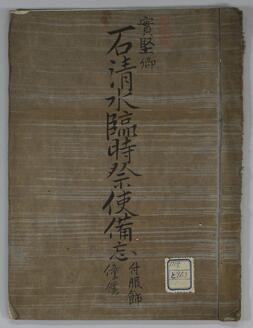 實堅卿
石清水臨時祭使備忘
付服飾
僮僕